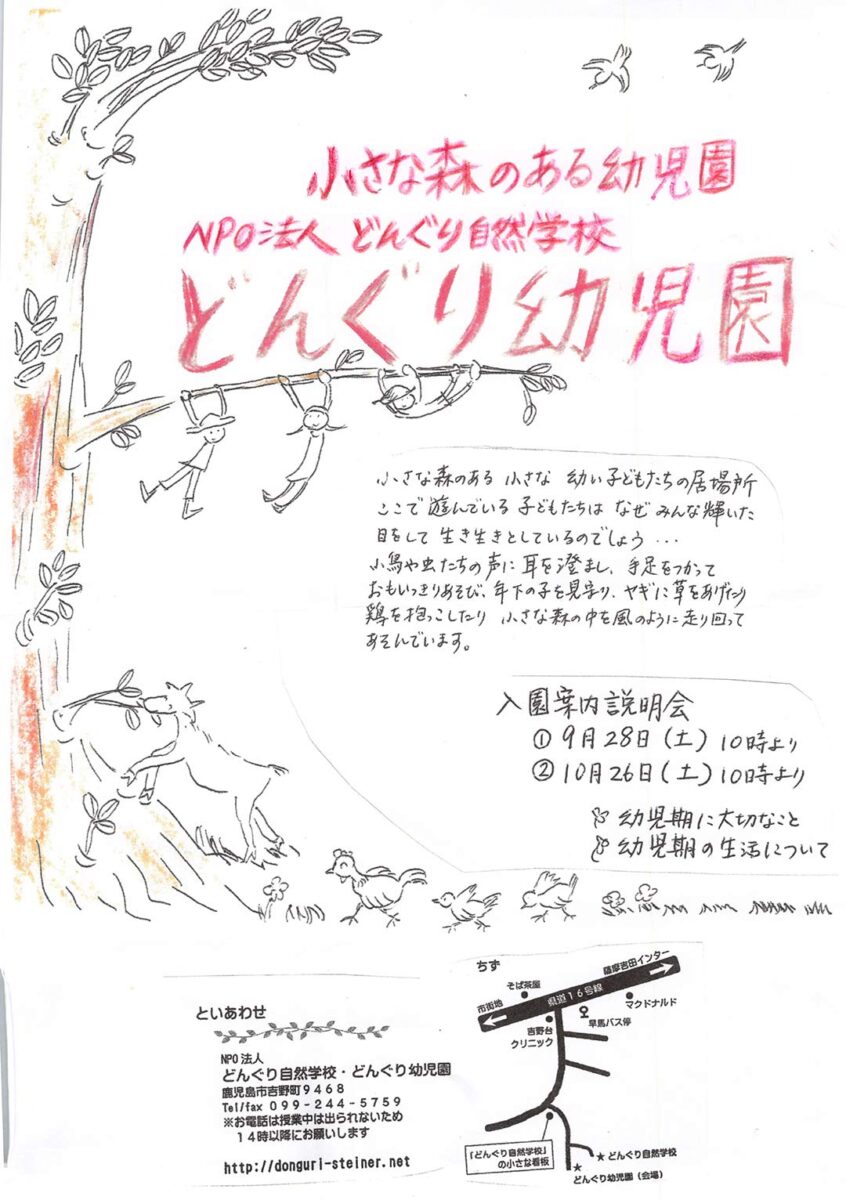 小さな森のある幼児園
NPO法人 どんぐり自然学校
どんぐり幼児園
小さな森のある 小さな 幼い子どもたちの居場所
ここで 遊んでいる 子どもたちは なぜ みんな輝いた
目をして 生き生きとしているのでしょう…
小鳥や虫たちの声に 耳を澄まし、手足をつかって
おもいっきりあそび、年下の子を見守り、ヤギに草をあげたり
鶏を抱っこしたり 小さな森の中を風のように走り回って
あそんでいます。
入園案内説明会
① 9月28日(土) 10時より
② 10月26日(土) 10時より
幼児期に大切なこと
幼児期の生活について
といあわせ
NPO法人
どんぐり自然学校・どんぐり幼児園
鹿児島市吉野町9468
Tel/fax 099-244-5759
※お電話は授業中は出られないため
14時以降にお願いします
http://donguri-steiner.net
ちず
薩摩吉田インター
そば茶屋
市街地
県道16号線
マクドナルド
早馬バス停
吉野台
クリニック
「どんぐり自然学校」
の小さな看板
★どんぐり自然学校
★
どんぐり幼児園（会場）